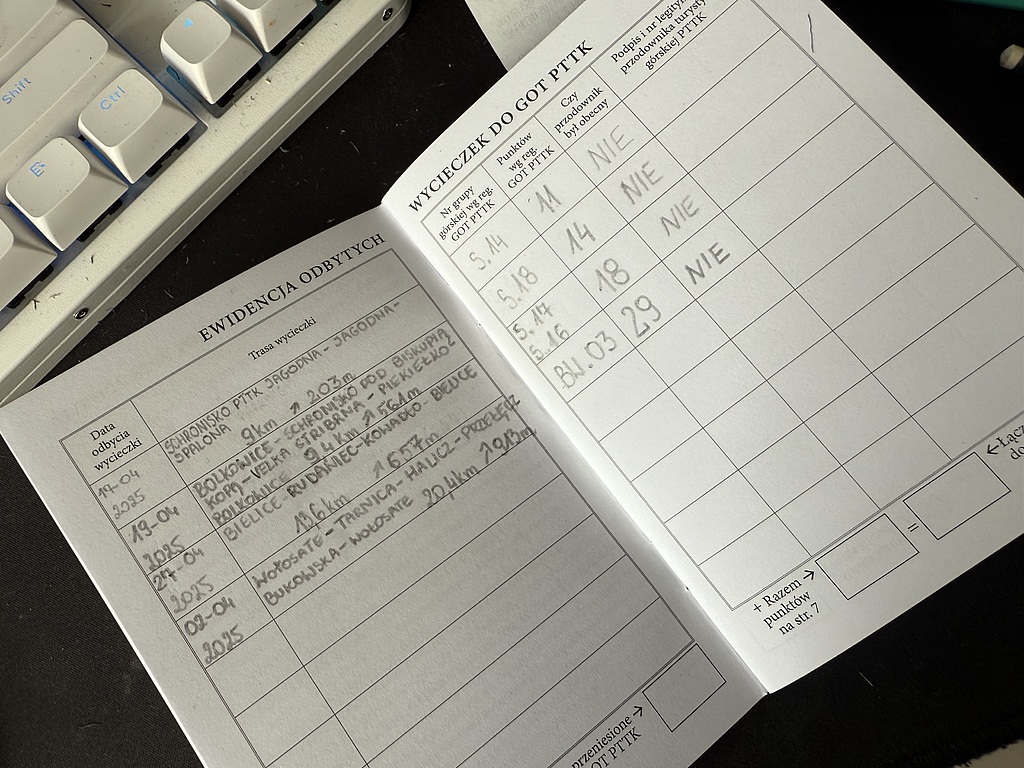 Shift
Ctrl
EWIDENCJA ODBYTYCH
Data
odbycia
wycieczki
Trasa wycieczki
17-04
2025
SCHRONISKO PTTK JAGODNA - JAGODNA -
SPALONA 9km ↑ 203m
19-04
2025
BOLKOWICE - SCHRONISKO POD BISKUPIĄ
KOPĄ - VELKA STRIBRNA - PIEKIEŁKO Z
BOLKOWICE 9,4km ↑ 561m
27-04
2025
BIELICE - RUDAWIEC - KOWADŁO - BIELICE
13,6km ↑ 657m
02-04
2025
WOŁOSATE - TARNICA - HALICZ - PRZEŁĘCZ
BUKOWSKA - WOŁOSATE 20,4km ↑ 913m
przeniesione →
GOT PTTK
WYCIECZEK DO GOT PTTK
Nr grupy
górskiej wg reg.
GOT PTTK
Punktów
wg reg.
GOT PTTK
Czy
przodownik
był obecny
Podpis i nr
przodownika
górskiej PTTK
S.14 11 NIE
S.18 14 NIE
S.17
S.16 18 NIE
BW.03 29 NIE
+ Razem →
punktów
na str. 7
=